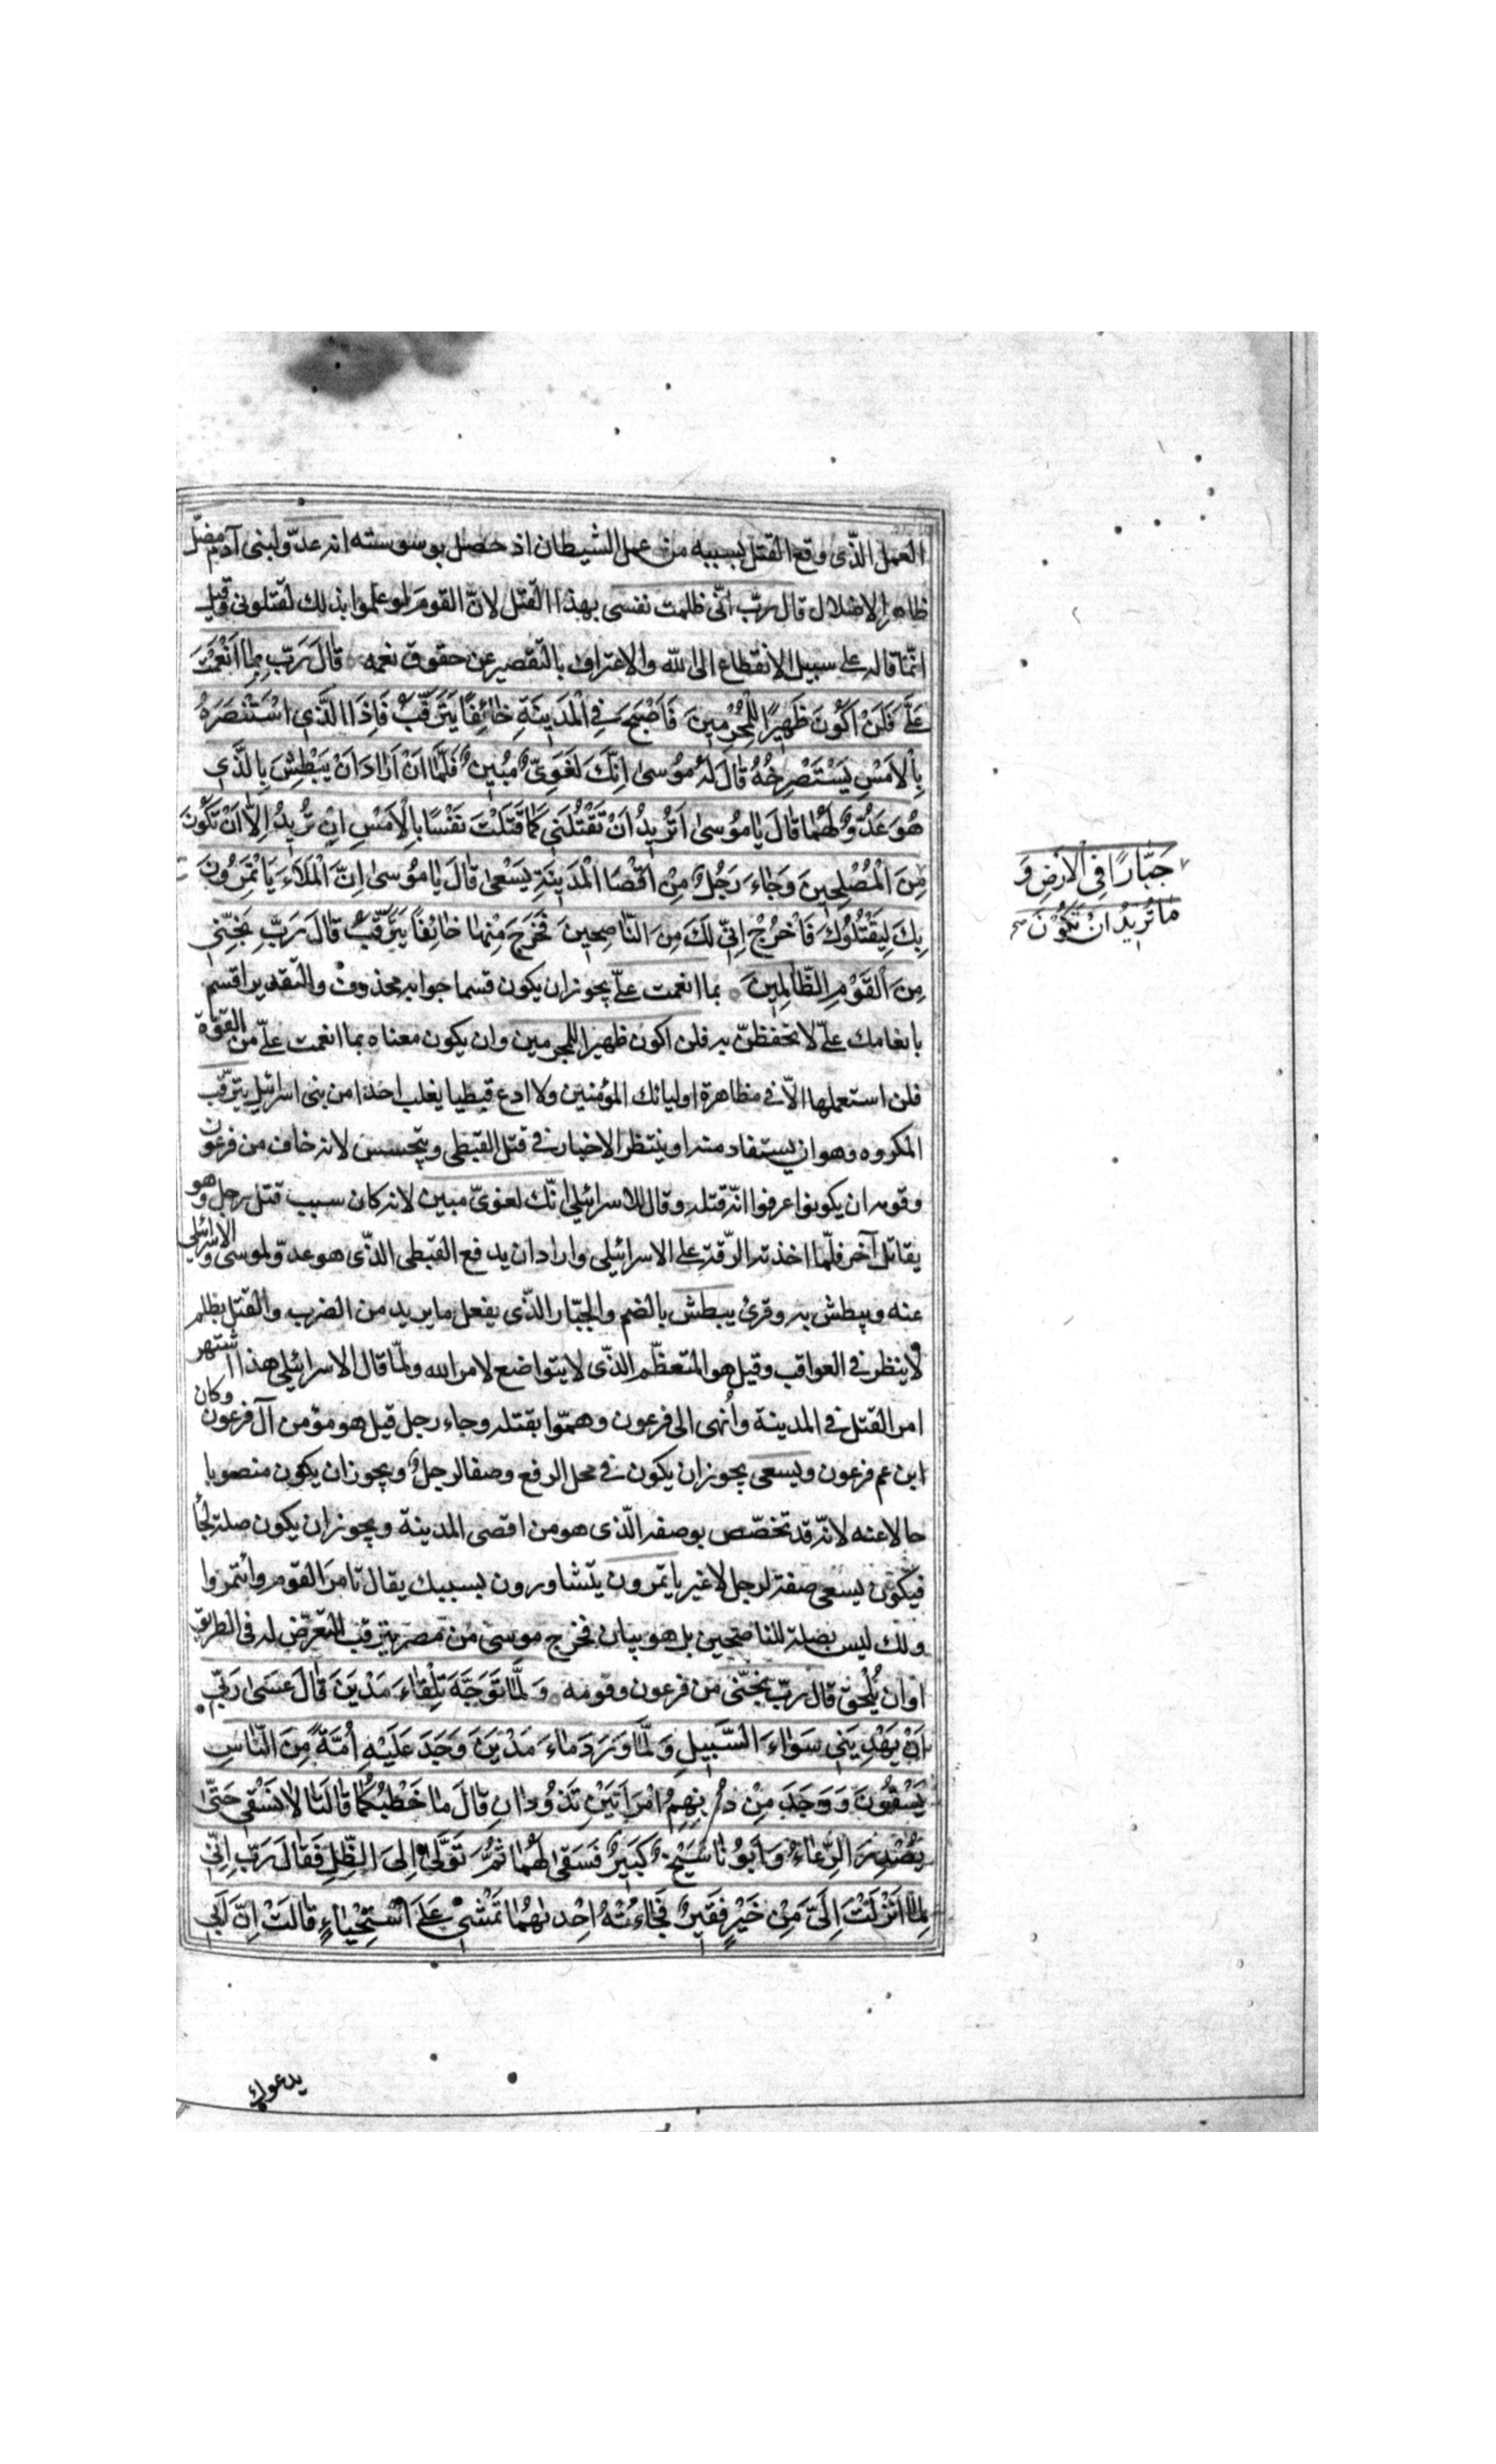 العمل الذّى وقع القتل بسببه من عمل الشيطان اذ حصل بوسوسته انه عدوّ لبنى آدم مضلّ
ظاهر الاضلال قال ربّ انّى ظلمت نفسى بهذا القتل لانّ القوم لو علموا بذلك لقتلونى وقيل
انّما قاله على سبيل الانقطاع الى الله والاعتراف بالتقصير عن حقوق نعمه قَالَ رَبِّ بِمَا اَنْعَمْتَ
عَلَىَّ فَلَنْ اَكُونَ ظَهِيرًا لِلْمُجْرِمِينَ فَاَصْبَحَ فِى الْمَدِينَةِ خَائِفًا يَتَرَقَّبُ فَاِذَا الَّذِى اسْتَنْصَرَهُ
بِالْاَمْسِ يَسْتَصْرِخُهُ قَالَ لَهُ مُوسىٰ اِنَّكَ لَغَوِىٌّ مُبِينٌ فَلَمَّا اَنْ اَرَادَ اَنْ يَبْطِشَ بِالَّذِى
هُوَ عَدُوٌّ لَهُمَا قَالَ يَا مُوسىٰ اَتُرِيدُ اَنْ تَقْتُلَنِى كَمَا قَتَلْتَ نَفْسًا بِالْاَمْسِ اِنْ تُرِيدُ اِلَّا اَنْ تَكُونَ
جَبَّارًا فِى الْاَرْضِ وَ
مَا تُرِيدُ اَنْ تَكُونَ صح
مِنَ الْمُصْلِحِينَ وَجَاءَ رَجُلٌ مِنْ اَقْصَا الْمَدِينَةِ يَسْعىٰ قَالَ يَا مُوسىٰ اِنَّ الْمَلَاَءَ يَاْتَمِرُونَ
بِكَ لِيَقْتُلُوكَ فَاخْرُجْ اِنِّى لَكَ مِنَ النَّاصِحِينَ فَخَرَجَ مِنْهَا خَائِفًا يَتَرَقَّبُ قَالَ رَبِّ نَجِّنِى
مِنَ الْقَوْمِ الظَّالِمِينَ بما انعمت علىّ يجوز ان يكون قسما جوابه محذوف والتقدير اقسم
بانعامك علىّ لاتحفظنّ به فلن اكون ظهيرا للمجرمين وان يكون معناه بما انعمت علىّ من القوّة
فلن استعملها الّا فى مظاهرة اوليائك المؤمنين ولا ادع قبطيا يغلب احدا من بنى اسرائيل يترقّب
المكروه وهو ان يستفاد منه او ينتظر الاخبار فى قتل القبطى ويتجسس لانه خاف من فرعون
وقومه ان يكونوا عرفوا انّه قتله وقال للاسرائيلى انّك لغوىّ مبين لانه كان سبب قتل رجل وهو
يقاتل آخر فلمّا اخذته الرّقة على الاسرائيلى واراد ان يدفع القبطى الذّى هو عدوّ لموسى والاسرائيلى
عنه ويبطش به وقرئ يبطش بالضم والجبّار الذّى يفعل ما يريد من الضرب والقتل بظلم
لا ينظر فى العواقب وقيل هو المتعظّم الذّى لا يتواضع لامر الله ولمّا قال الاسرائيلى هذا اشتهر
امر القتل فى المدينة وأنهى الى فرعون وهمّوا بقتله وجاء رجل قيل هو مؤمن آل فرعون وكان
ابن عم فرعون ويسعى يجوز ان يكون فى محل الرفع وصفا لرجل ويجوز ان يكون منصوبا
حالا عنه لانّه قد تخصّص بوصفه الّذى هو من اقصى المدينة ويجوز ان يكون صلة لجاء
فيكون يسعى صفة لرجل لا غير ياتمرون يتشاورون بسببك يقال تامر القوم وائتمروا
ولك ليس بصلة للناصحين بل هو بيان فخرج موسى من مصر يترقب التعرّض له فى الطريق
او ان يُلحق قال ربّ نجّنى من فرعون وقومه وَلَمَّا تَوَجَّهَ تِلْقَاءَ مَدْيَنَ قَالَ عَسىٰ رَبِّى
اَنْ يَهْدِيَنِى سَوَاءَ السَّبِيلِ وَلَمَّا وَرَدَ مَاءَ مَدْيَنَ وَجَدَ عَلَيْهِ اُمَّةً مِنَ النَّاسِ
يَسْقُونَ وَوَجَدَ مِنْ دُونِهِمُ امْرَاَتَيْنِ تَذُودَانِ قَالَ مَا خَطْبُكُمَا قَالَتَا لَا نَسْقِى حَتّىٰ
يُصْدِرَ الرِّعَاءُ وَاَبُونَا شَيْخٌ كَبِيرٌ فَسَقىٰ لَهُمَا ثُمَّ تَوَلّىٰ اِلَى الظِّلِّ فَقَالَ رَبِّ اِنِّى
لِمَا اَنْزَلْتَ اِلَىَّ مِنْ خَيْرٍ فَقِيرٌ فَجَاءَتْهُ اِحْدٰهُمَا تَمْشِى عَلَى اسْتِحْيَاءٍ قَالَتْ اِنَّ اَبِى
يدعوك